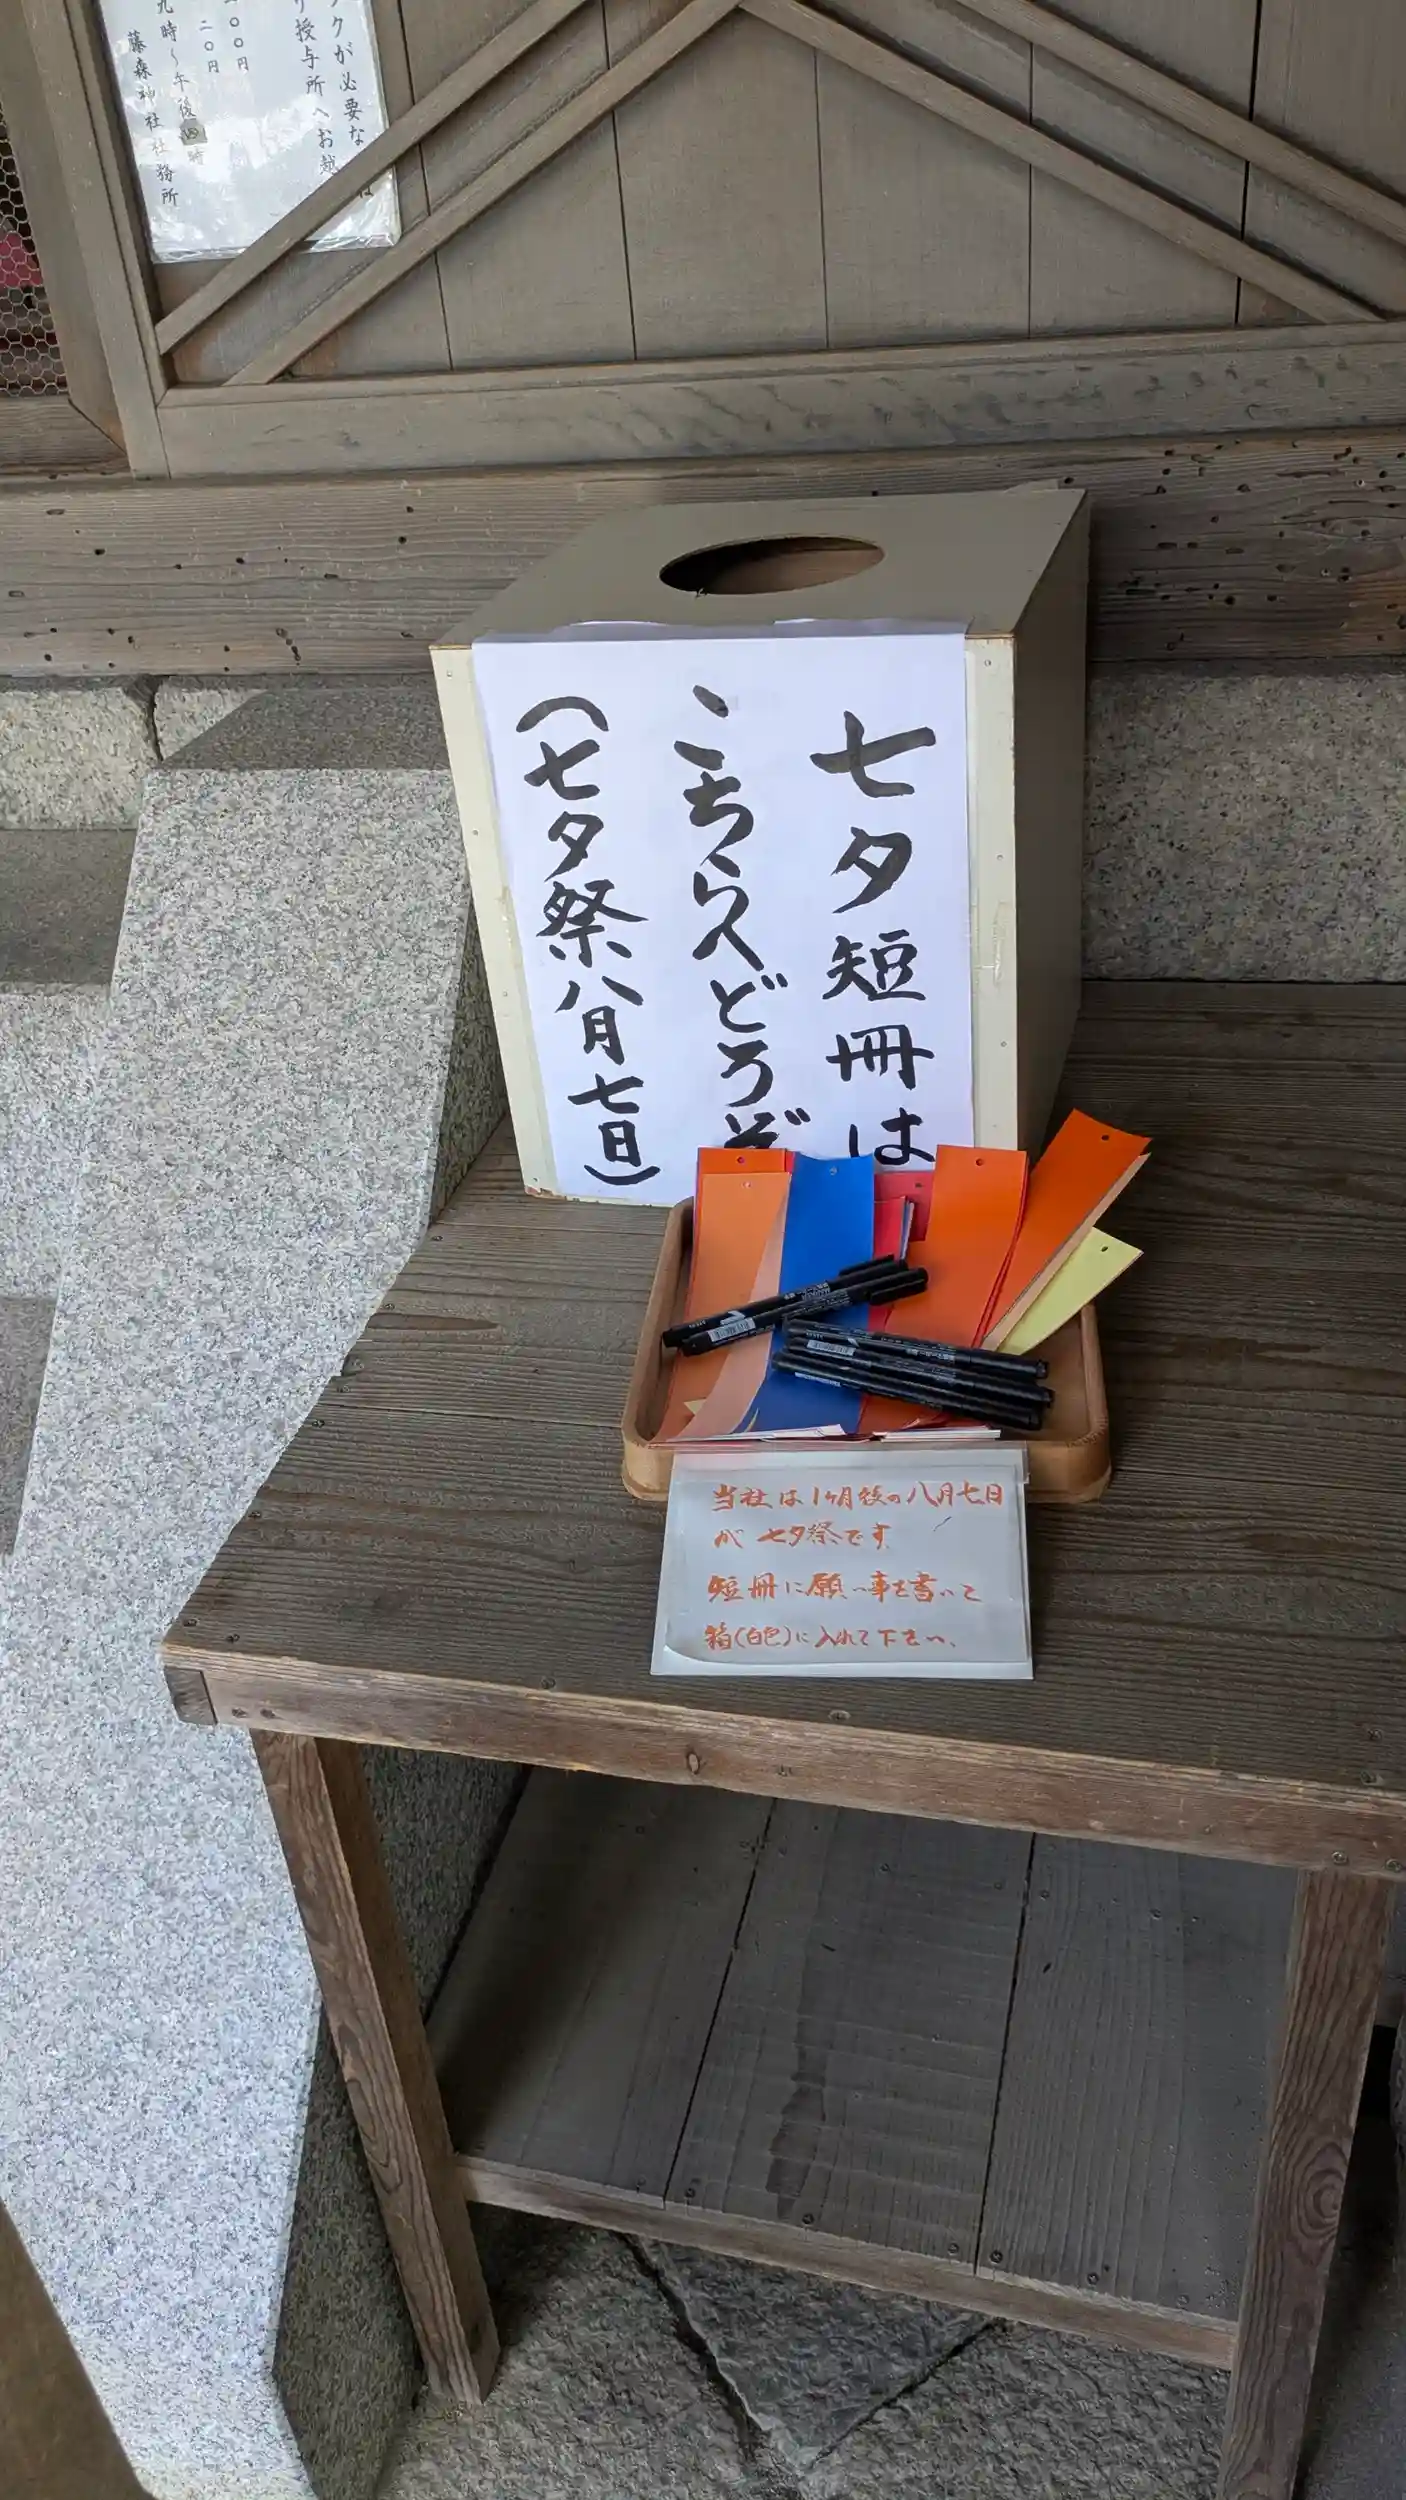 クが必要な
り授与所へお越
〇〇円
二〇円
九時〜午後四時
藤森神社社務所
七夕短冊は
こちらへどうぞ
（七夕祭八月七日）
当社は1ヶ月後の八月七日
が七夕祭です
短冊に願い事を書いて
箱(白色)に入れて下さい、